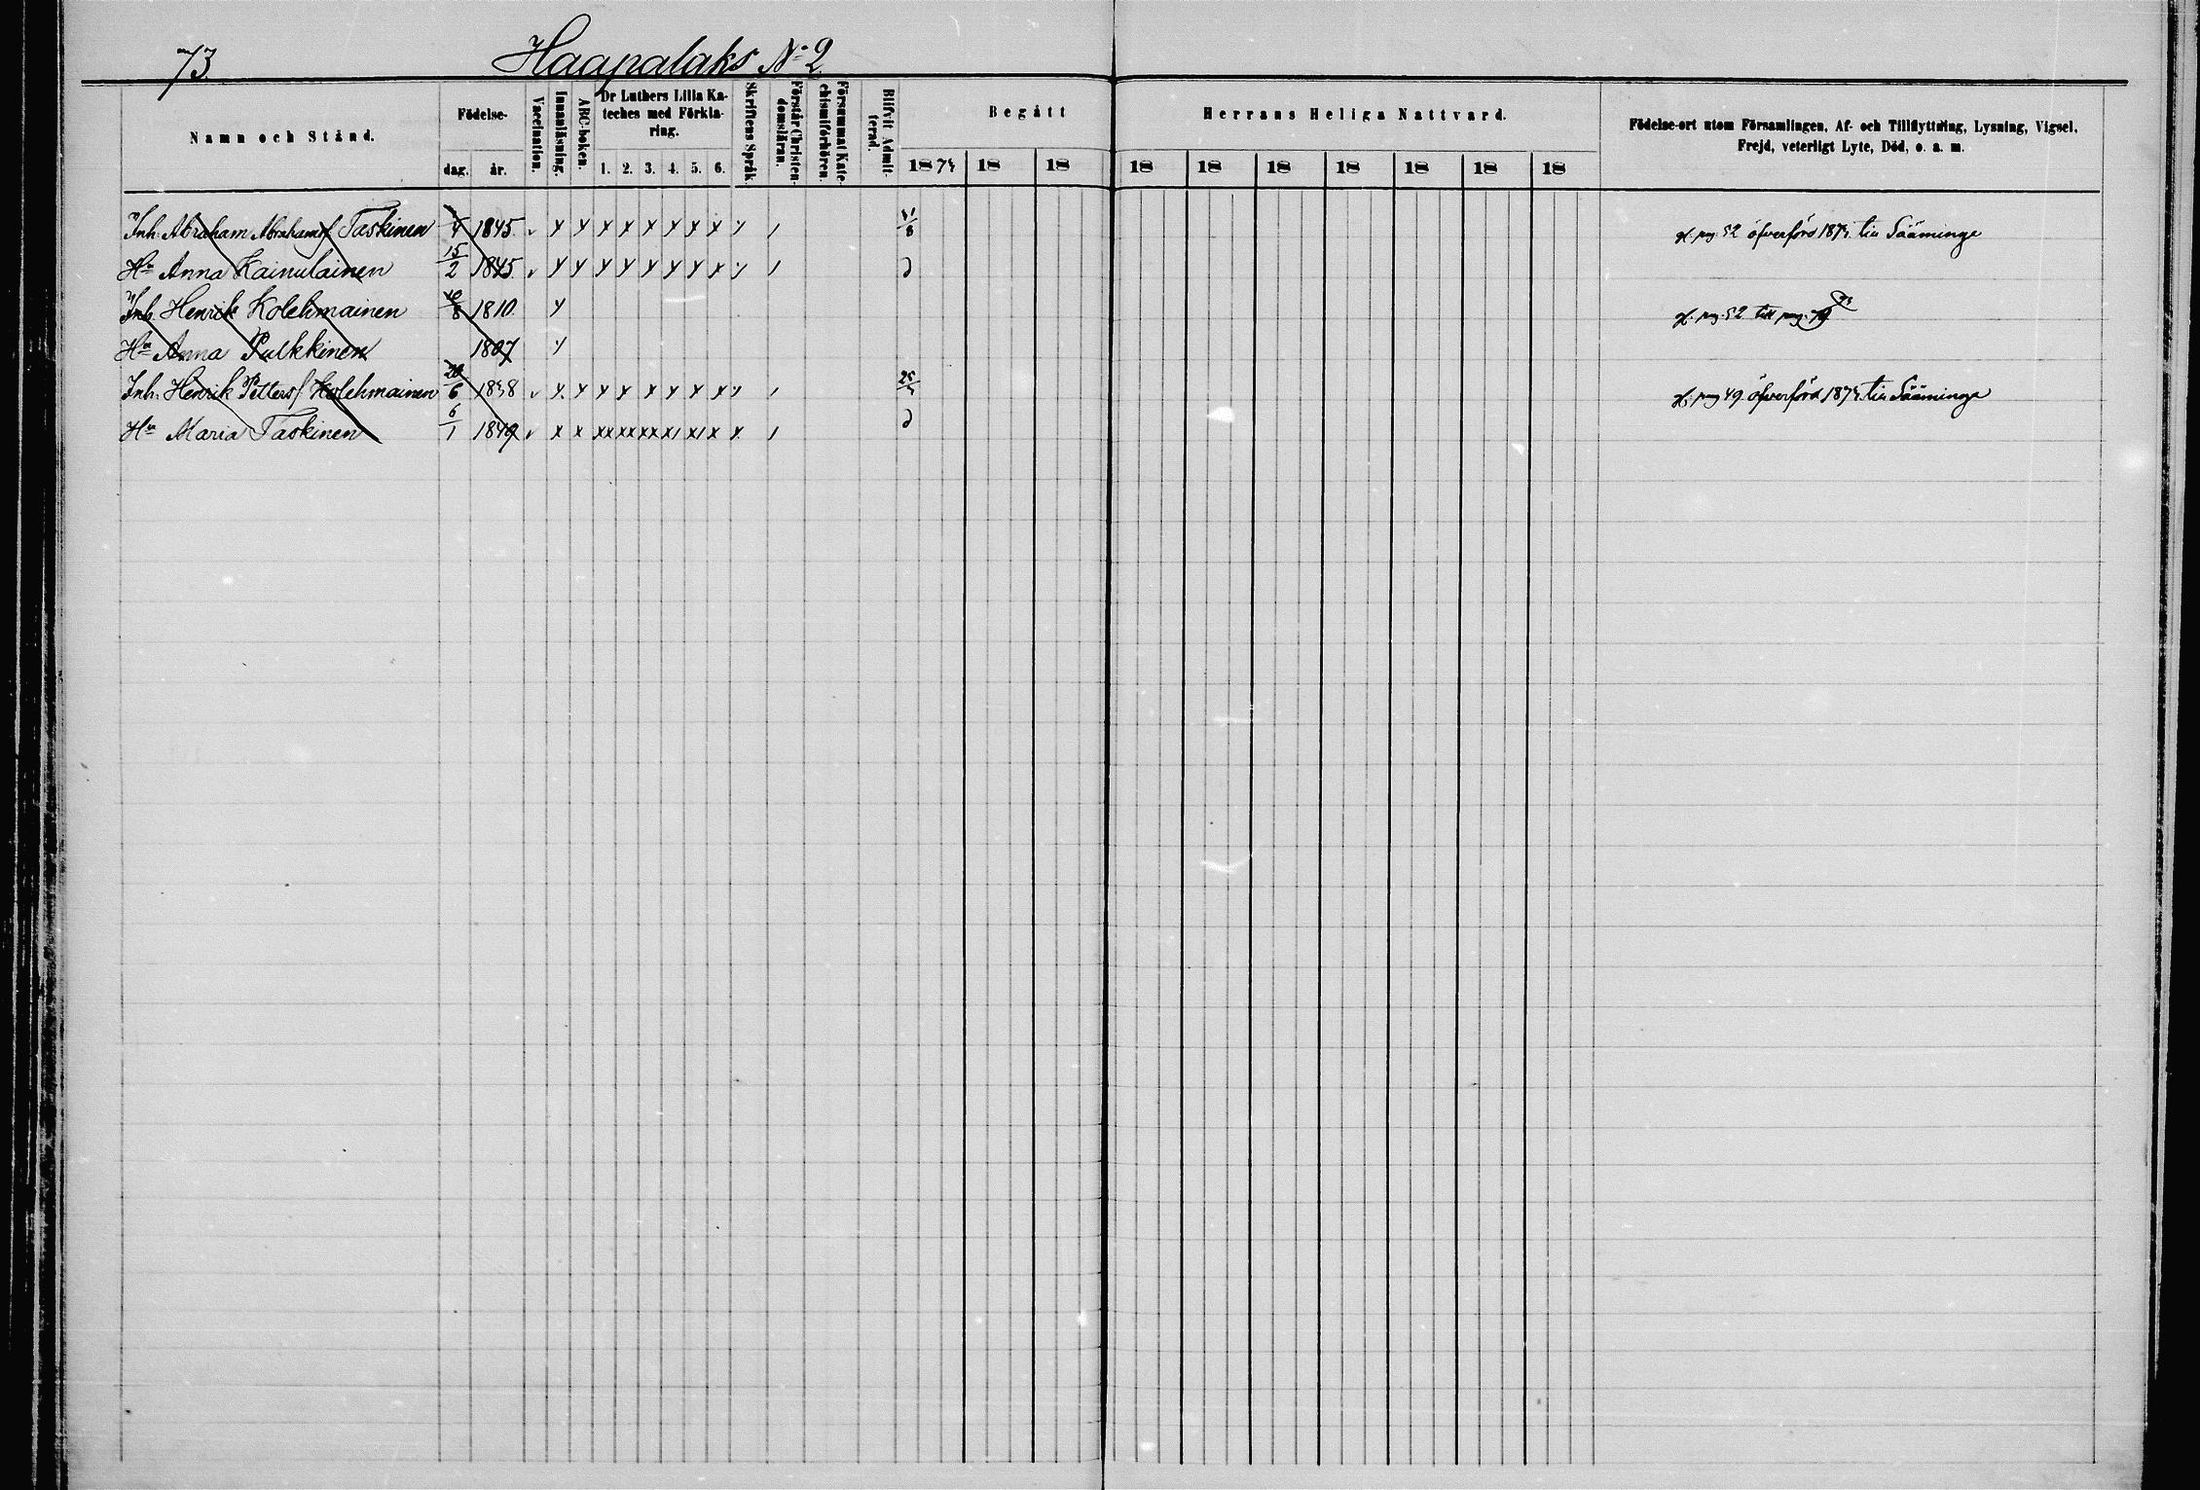 73 Haapalaks No 2
Namn och Stånd. Födelse- dag. år. Vaccination. Innanläsning. ABC-boken. Dr Luthers Lilla Kateches med Förklaring. 1. 2. 3. 4. 5. 6. Skriftens Språk. Förstår Christendomsläran. Försummat Katechismiförhören. Blifvit Admitterad. Begått Herrans Heliga Nattvard. Födelse-ort utom Församlingen, Af- och Tillflyttning, Lysning, Vigsel, Frejd, veterligt Lyte, Död, o. a. m.
18 18 18 18 18 18 18 18 18 18
Inh. Abraham Abrahamsf Taskinen 1845 x x x x x x x x pag. 52 öfverförd till Sääminge
Hu Anna Kainulainen 15/2 1845 x x x x x x x x
Inh. Henrik Kolehmainen 1810 x pag. 52 till pag.
Hu Anna Pulkkinen 1807 x
Inh. Henrik Pettersf Kolehmainen 20/6 1838 x x x x x x x x pag 49 öfverförd till Sääminge
Hu Maria Taskinen 6/1 1849 x x xx xx xx x x x x